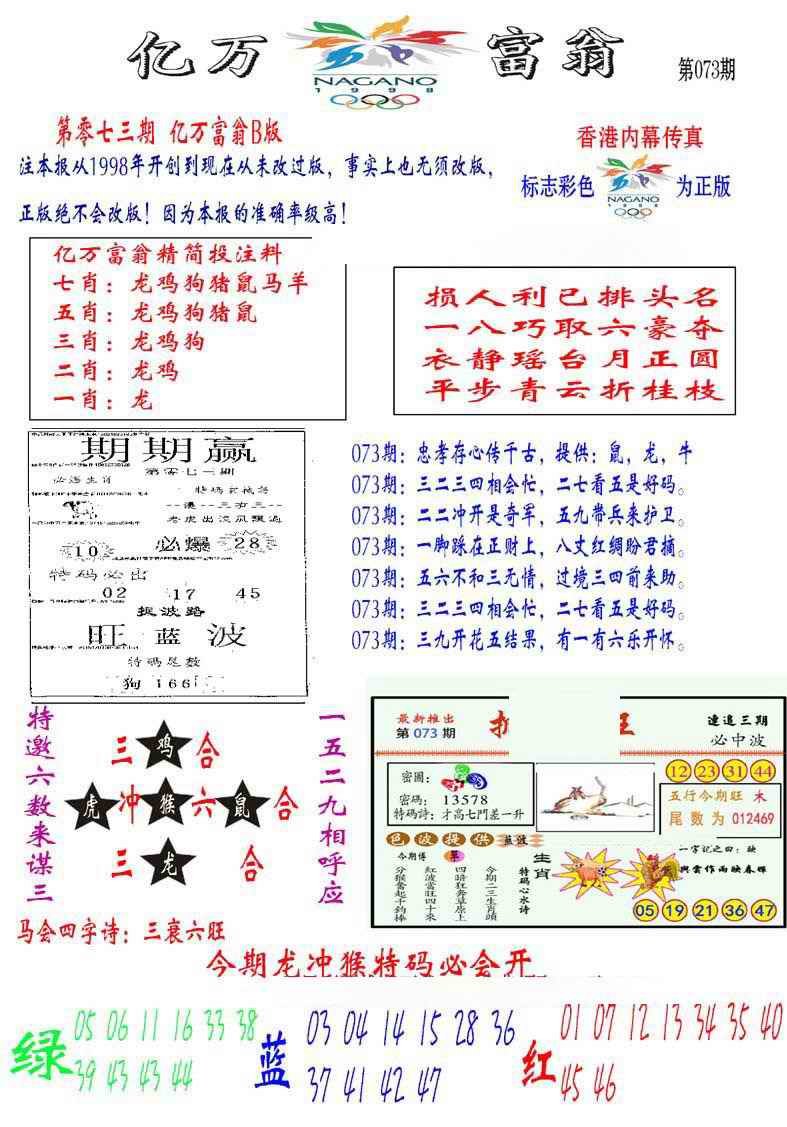 亿万
NAGANO
1998
富翁
第073期
第零七三期 亿万富翁B版
香港内幕传真
注本报从1998年开创到现在从未改过版，事实上也无须改版，
正版绝不会改版！因为本报的准确率级高！
标志彩色
NAGANO
为正版
亿万富翁精简投注料
七肖：龙鸡狗猪鼠马羊
五肖：龙鸡狗猪鼠
三肖：龙鸡狗
二肖：龙鸡
一肖：龙
损人利已排头名
一八巧取六豪夺
衣静瑶台月正圆
平步青云折桂枝
期期赢
第零七三期
必爆
10
28
特码必出
02 17 45
捉波路
旺蓝波
特码尾数
狗166
073期：忠孝存心传千古，提供：鼠，龙，牛
073期：三二三四相会忙，二七看五是好码。
073期：二二冲开是奇军，五九带兵来护卫。
073期：一脚踩在正财上，八丈红绸盼君摘。
073期：五六不和三无情，过境三四前来助。
073期：三二三四相会忙，二七看五是好码。
073期：三九开花五结果，有一有六乐开怀。
特邀六数来谋三
三鸡合
虎冲猴六鼠合
三龙合
一五二九相呼应
最新推出
第073期
旺
连追三期
必中波
密圖：
密碼：13578
特碼詩：才高七門差一升
12 23 31 44
五行今期旺 木
尾数为 012469
色波提供 蓝波
今期博 草
今期二三生肖頭
四暗狂奔草原上
紅波當旺四十來
分猴奮起千鈞棒
特码心水诗
生肖
一字记之曰：映
興雲作雨映春輝
05 19 21 36 47
马会四字诗：三衰六旺
今期龙冲猴特码必会开
绿
05 06 11 16 33 38
39 43 43 44
蓝
03 04 14 15 28 36
37 41 42 47
红
01 07 12 13 34 35 40
45 46